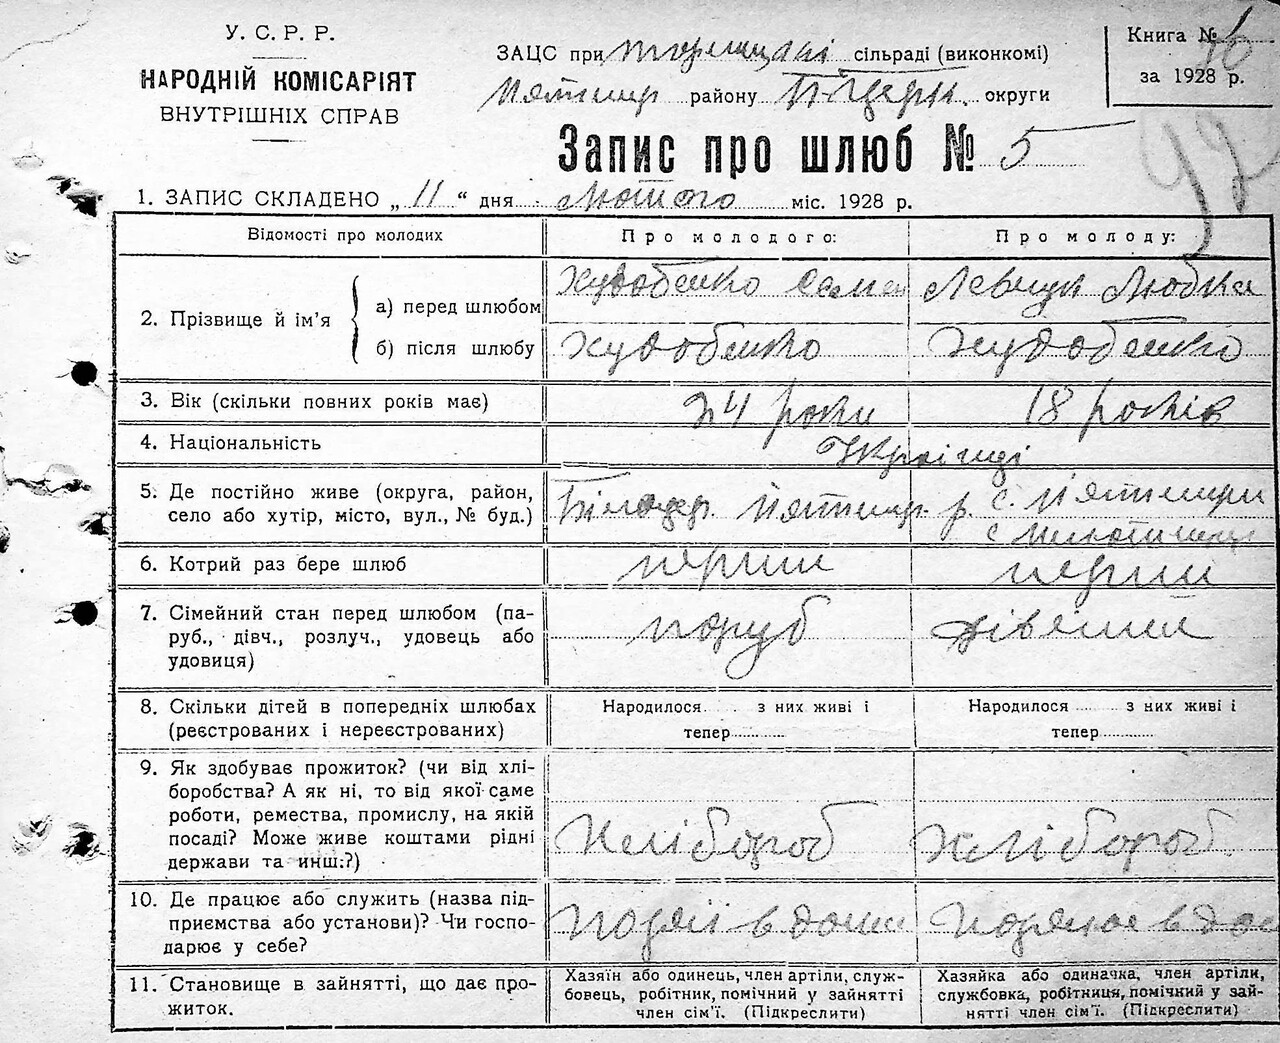 У. С. Р. Р.
НАРОДНІЙ КОМІСАРІЯТ
ВНУТРІШНІХ СПРАВ
ЗАЦС при сільраді (виконкомі)
району Б/Церк. округи
Книга №
за 1928 р.
92
Запис про шлюб № 5
1. ЗАПИС СКЛАДЕНО „ 11 “ дня лютого міс. 1928 р.
Відомості про молодих
Про молодого:
Про молоду:
2. Прізвище й ім’я
а) перед шлюбом
Худобенко Семен
Левчук Любка
б) після шлюбу
Худобенко
Худобенко
3. Вік (скільки повних років має)
24 роки
18 років
4. Національність
Українці
5. Де постійно живе (округа, район,
село або хутір, місто, вул., № буд.)
Білоцер. Пятигір. р. с. Пятигори
с
6. Котрий раз бере шлюб
перший
перший
7. Сімейний стан перед шлюбом (па-
руб., дівч., розлуч., удовець або
удовиця)
паруб
дівчина
8. Скільки дітей в попередніх шлюбах
(реєстрованих і нереєстрованих)
Народилося з них живі і
тепер
Народилося з них живі і
тепер
9. Як здобуває прожиток? (чи від хлі-
боробства? А як ні, то від якої саме
роботи, ремества, промислу, на якій
посаді? Може живе коштами рідні
держави та инш:?)
Хлібороб
Хлібороб
10. Де працює або служить (назва під-
приємства або установи)? Чи госпо-
дарює у себе?
в дома
в до
11. Становище в зайнятті, що дає про-
житок.
Хазяїн або одинець, член артіли, служ-
бовець, робітник, помічний у зайнятті
член сім’ї. (Підкреслити)
Хазяйка або одиначка, член артіли,
службовка, робітниця, помічний у зай-
нятті член сім’ї. (Підкреслити)